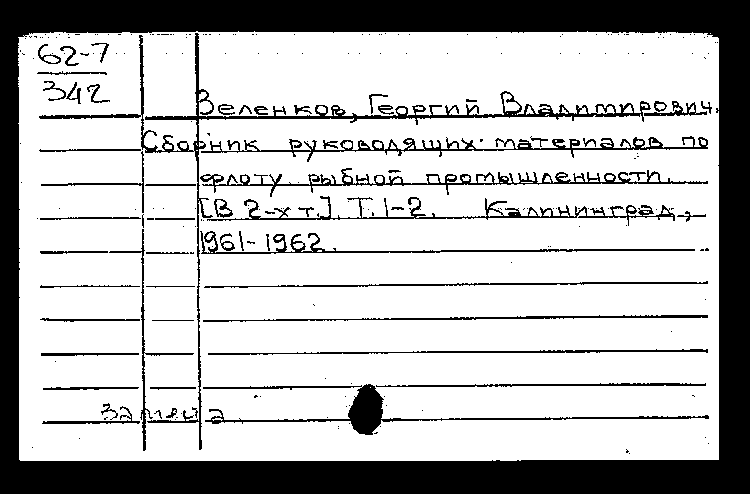 62-7
342
Зеленков, Георгий Владимирович.
Сборник руководящих материалов по
флоту рыбной промышленности.
[В 2-х т.]. Т. 1-2. Калининград,
1961-1962.
замена